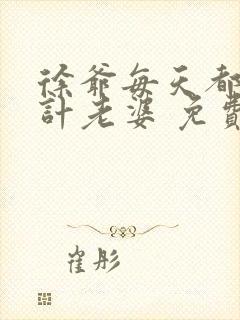 徐爺每天都
計老婆 免費
崔彤